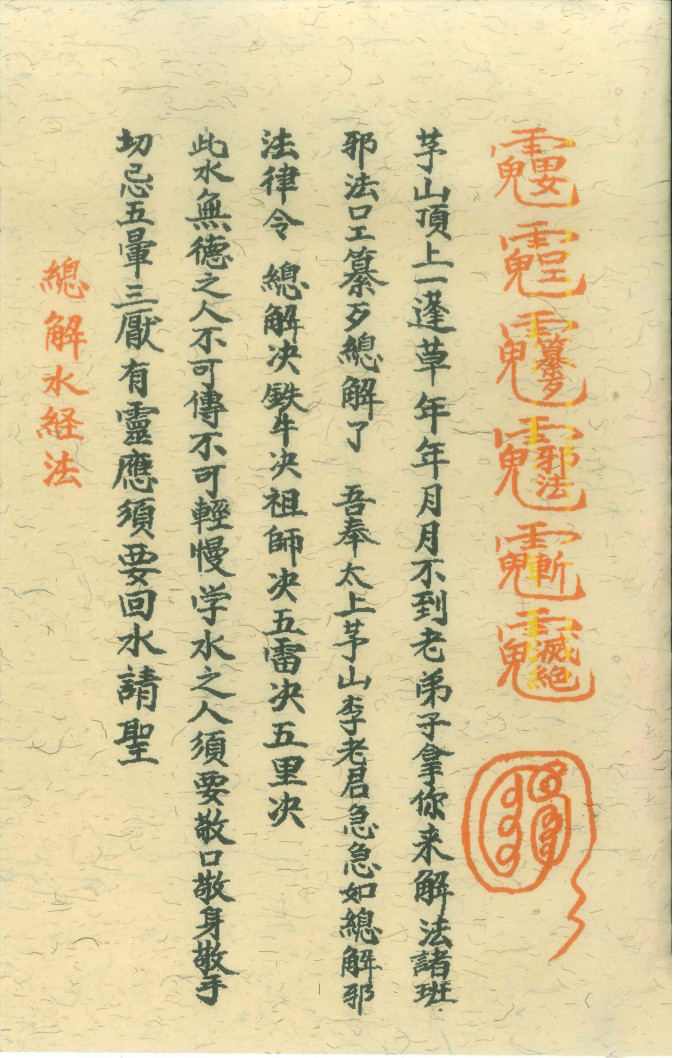 茅山頂上一蓬草年年月月不到老弟子拿你来解法諸班
邪法口工纂歹總解了 吾奉太上茅山李老君急急如總解邪
法律令 總解决鉄牛决祖師决五雷决五里决
此水無德之人不可傳不可輕慢学水之人須要敬口敬身敬手
切忌五暈三厭有靈應須要回水請聖
總解水経法